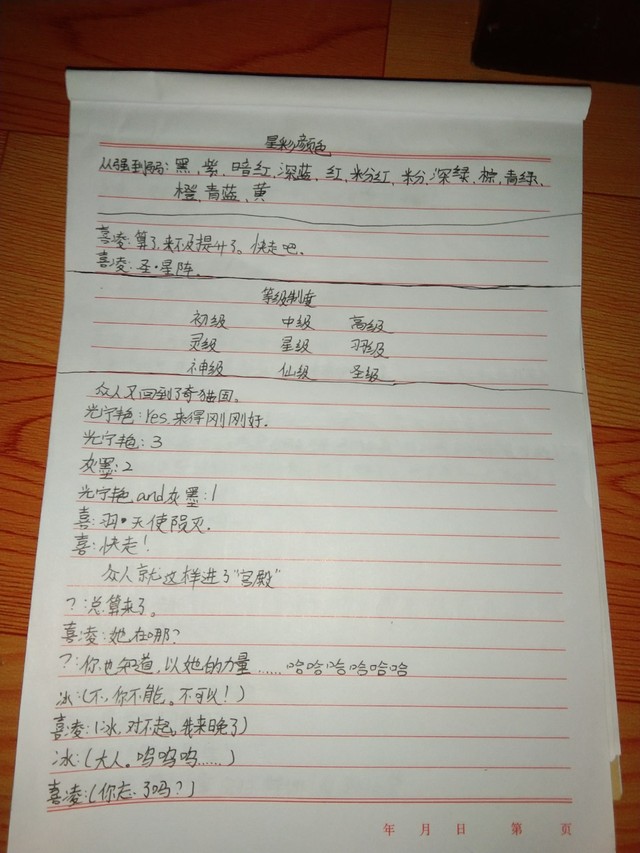 星彩颜色
从强到弱：黑、紫、暗红、深蓝、红、粉红、粉、深绿、棕、青绿、
橙、青蓝、黄
喜凌：算了，来不及提升了。快走吧。
喜凌：圣·星阵。
等级制度
初级 中级 高级
灵级 星级 羽级
神级 仙级 圣级
众人又回到了奇猫国。
光宁艳：Yes，来得刚刚好。
光宁艳：3
灰墨：2
光宁艳and灰墨：1
喜：羽·天使陨灭。
喜：快走！
众人就这样进了“宫殿”
？：总算来了。
喜凌：她在哪？
？：你也知道，以她的力量……哈哈哈哈哈哈
冰：(不，你不能。不可以！)
喜凌：(冰，对不起，我来晚了)
冰：(大人。呜呜呜……)
喜凌：(你忘了吗？)
年 月 日 第 页